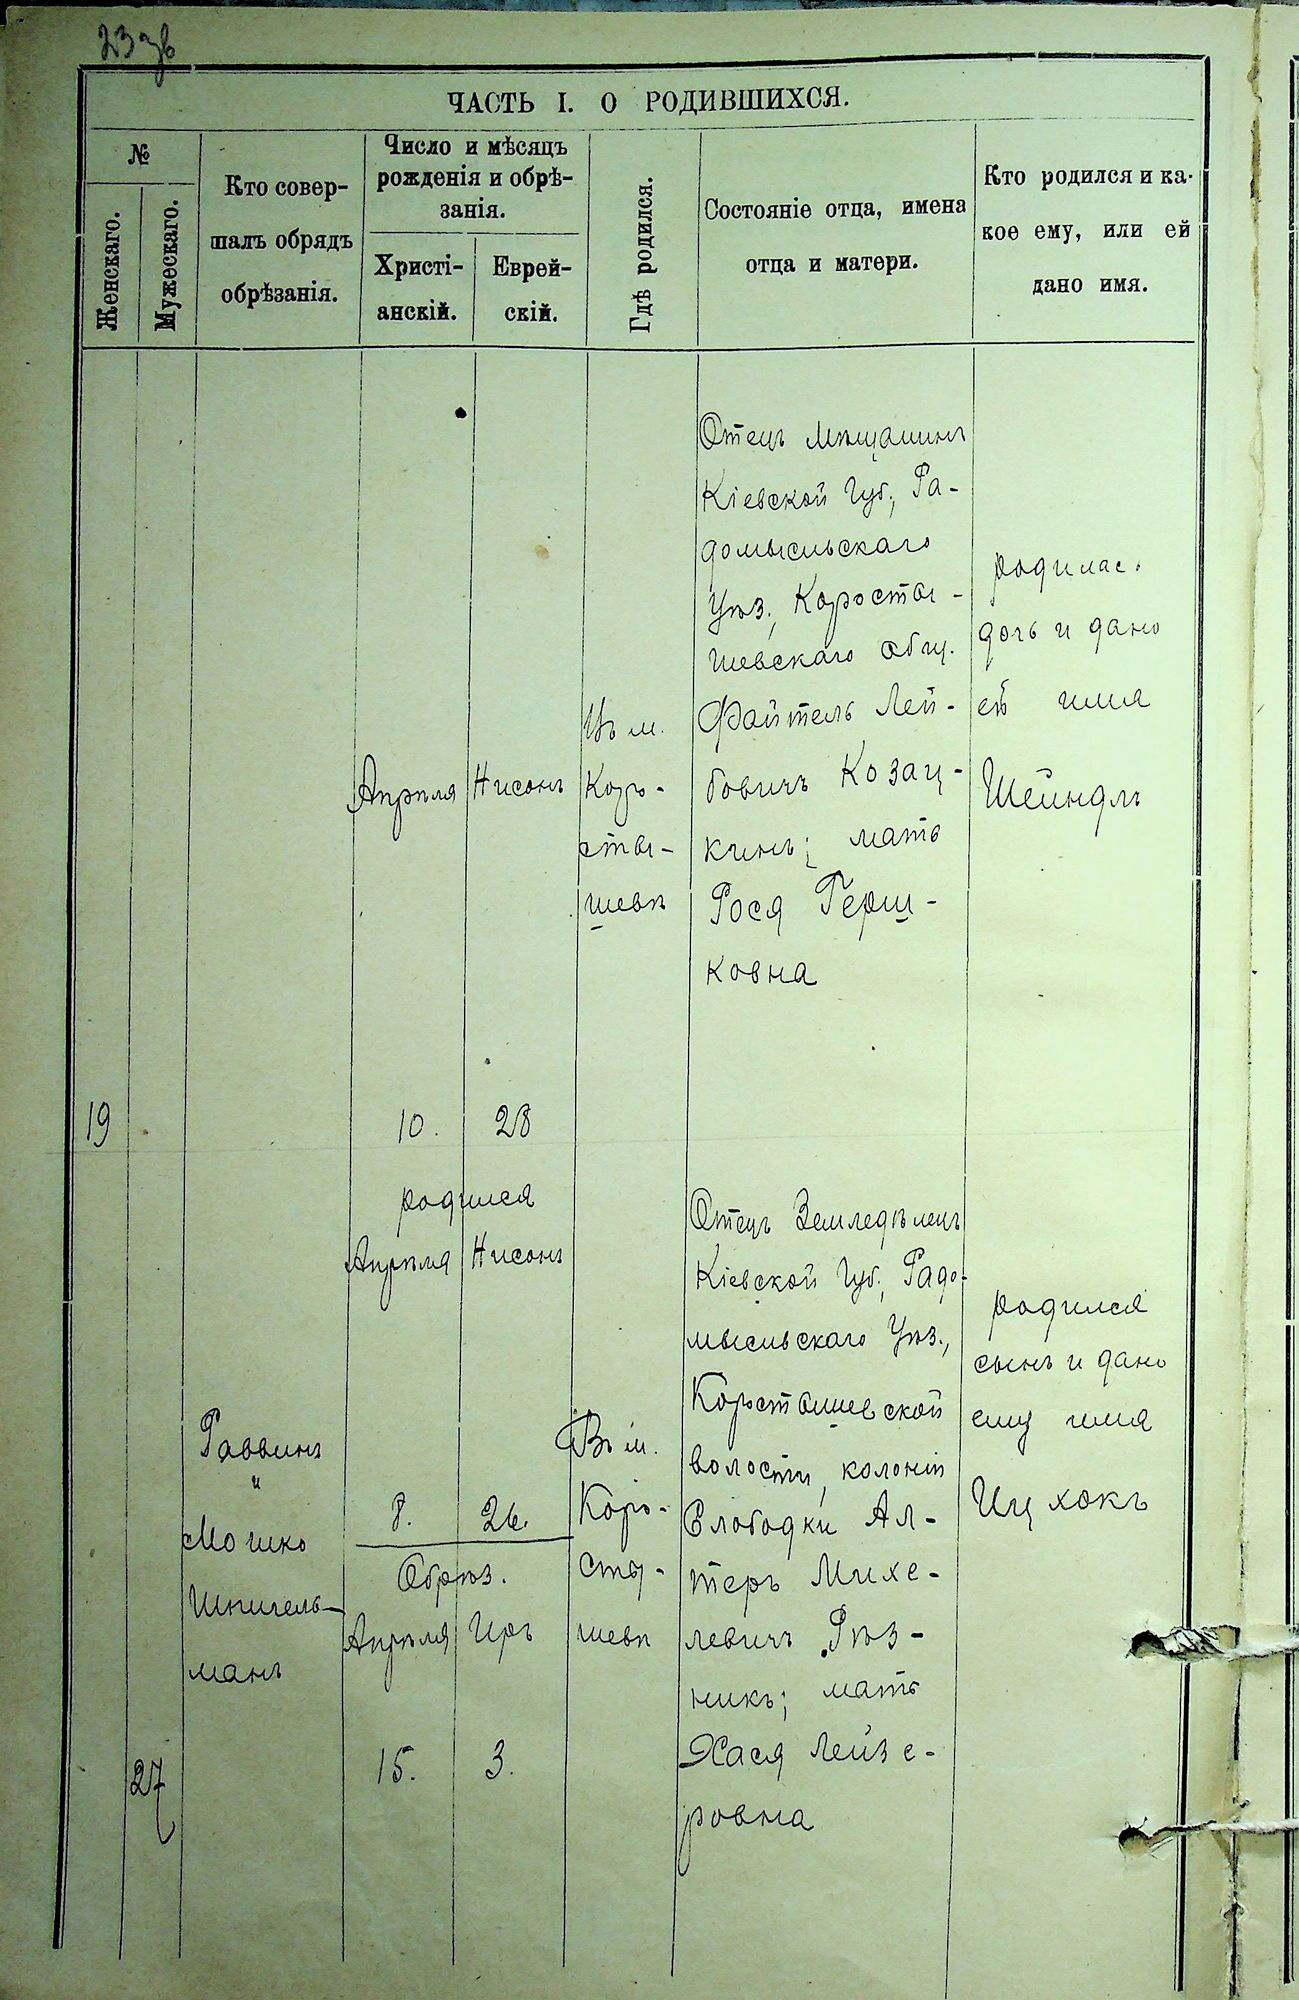 23 зв
ЧАСТЬ I. О РОДИВШИХСЯ.
№
Женскаго.
Мужескаго.
Кто совер-
шалъ обрядъ
обрѣзанія.
Число и мѣсяцъ
рожденія и обрѣ-
занія.
Христі-
анскій.
Еврей-
скій.
Гдѣ родился.
Состояніе отца, имена
отца и матери.
Кто родился и ка-
кое ему, или ей
дано имя.
19
Апрѣля
10.
Нисонъ
28
Въ м.
Коро-
сты-
шевѣ
Отецъ Мѣщанинъ
Кіевской Губ., Ра-
домысльскаго
Уѣз., Коросты-
шевскаго общ.
Файтель Лей-
бовичъ Козац-
кинъ; мать
Рося Герш-
ковна
родилас.
дочь и дано
ей имя
Шейндль
27
Раввинъ
и
Мошко
Шпигель-
манъ
родился
Апрѣля
Нисонъ
8.
26.
Обрѣз.
Апрѣля
Иръ
15.
3.
Въ м.
Коро-
сты-
шевѣ
Отецъ Земледѣлецъ
Кіевской Губ., Радо-
мысльскаго Уѣз.,
Коростышевской
волости, колоніи
Слободки Ал-
теръ Михе-
левичъ Рѣз-
никъ; мать
Хася Лейзе-
ровна
родился
сынъ и дано
ему имя
Ицхокъ